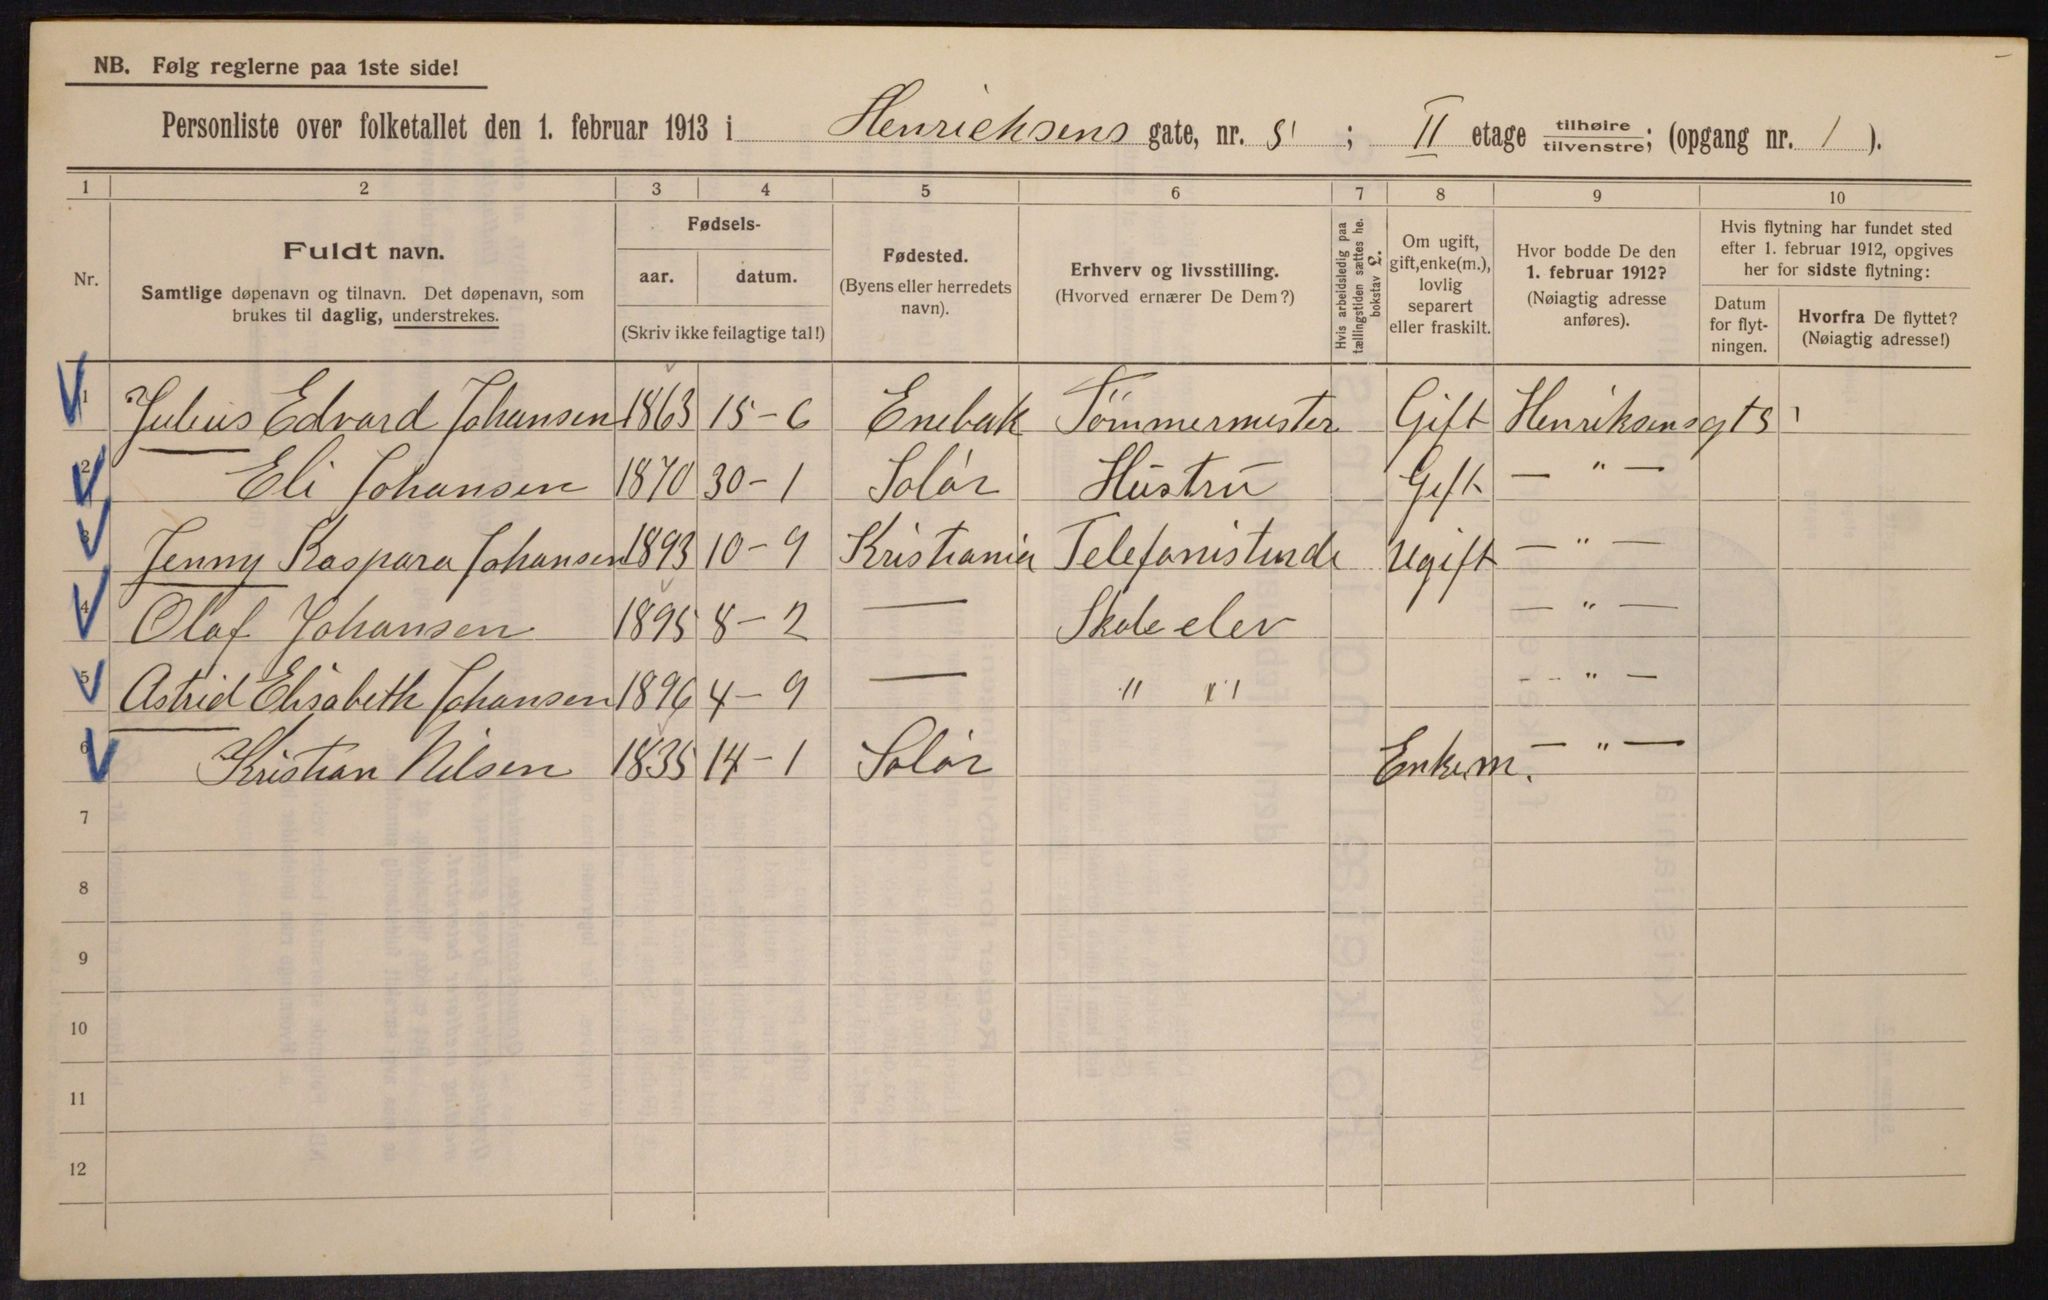 NB. Følg reglerne paa 1ste side!
Personliste over folketallet den 1. februar 1913 i Henrichsens gate, nr. 5 ; II etage tilhøire tilvenstre; (opgang nr. 1 ).
1 2 3 4 5 6 7 8 9 10
Nr.
Fuldt navn.
Samtlige døpenavn og tilnavn. Det døpenavn, som
brukes til daglig, understrekes.
Fødsels-
aar. datum.
(Skriv ikke feilagtige tal!)
Fødested.
(Byens eller herredets
navn).
Erhverv og livsstilling.
(Hvorved ernærer De Dem?)
Hvis arbeidsledig paa
tællingstiden sættes he.
bokstav L.
Om ugift,
gift, enke(m.),
lovlig
separert
eller fraskilt.
Hvor bodde De den
1. februar 1912?
(Nøiagtig adresse
anføres).
Hvis flytning har fundet sted
efter 1. februar 1912, opgives
her for sidste flytning:
Datum
for flyt-
ningen.
Hvorfra De flyttet?
(Nøiagtig adresse!)
1 Julius Edvard Johansen 1863 15-6 Enebak Tömmermester Gift Henriksensgt 5
2 Eli Johansen 1870 30-1 Solör Hustru Gift — " —
3 Jenny Kaspara Johansen 1893 10-9 Kristiania Telefonistinde Ugift — " —
4 Olaf Johansen 1895 8-2 — Skoleelev — " —
5 Astrid Elisabeth Johansen 1896 4-9 — " " — " —
6 Kristian Nilsen 1835 14-1 Solör Enkem. — " —
7
8
9
10
11
12